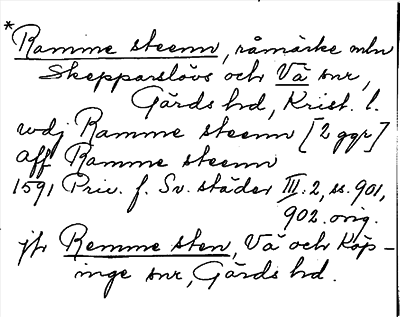 * Ramme steenn, råmärke mln
Skepparslövs och Vä snr,
Gärds hd, Krist. l.
wdj Ramme steenn [2 ggr]
aff Ramme steenn
1591 Priv. f. Sv. städer III:2, ss. 901,
902. orig.
jfr Remme sten, Vä och Köp-
inge snr, Gärds hd.